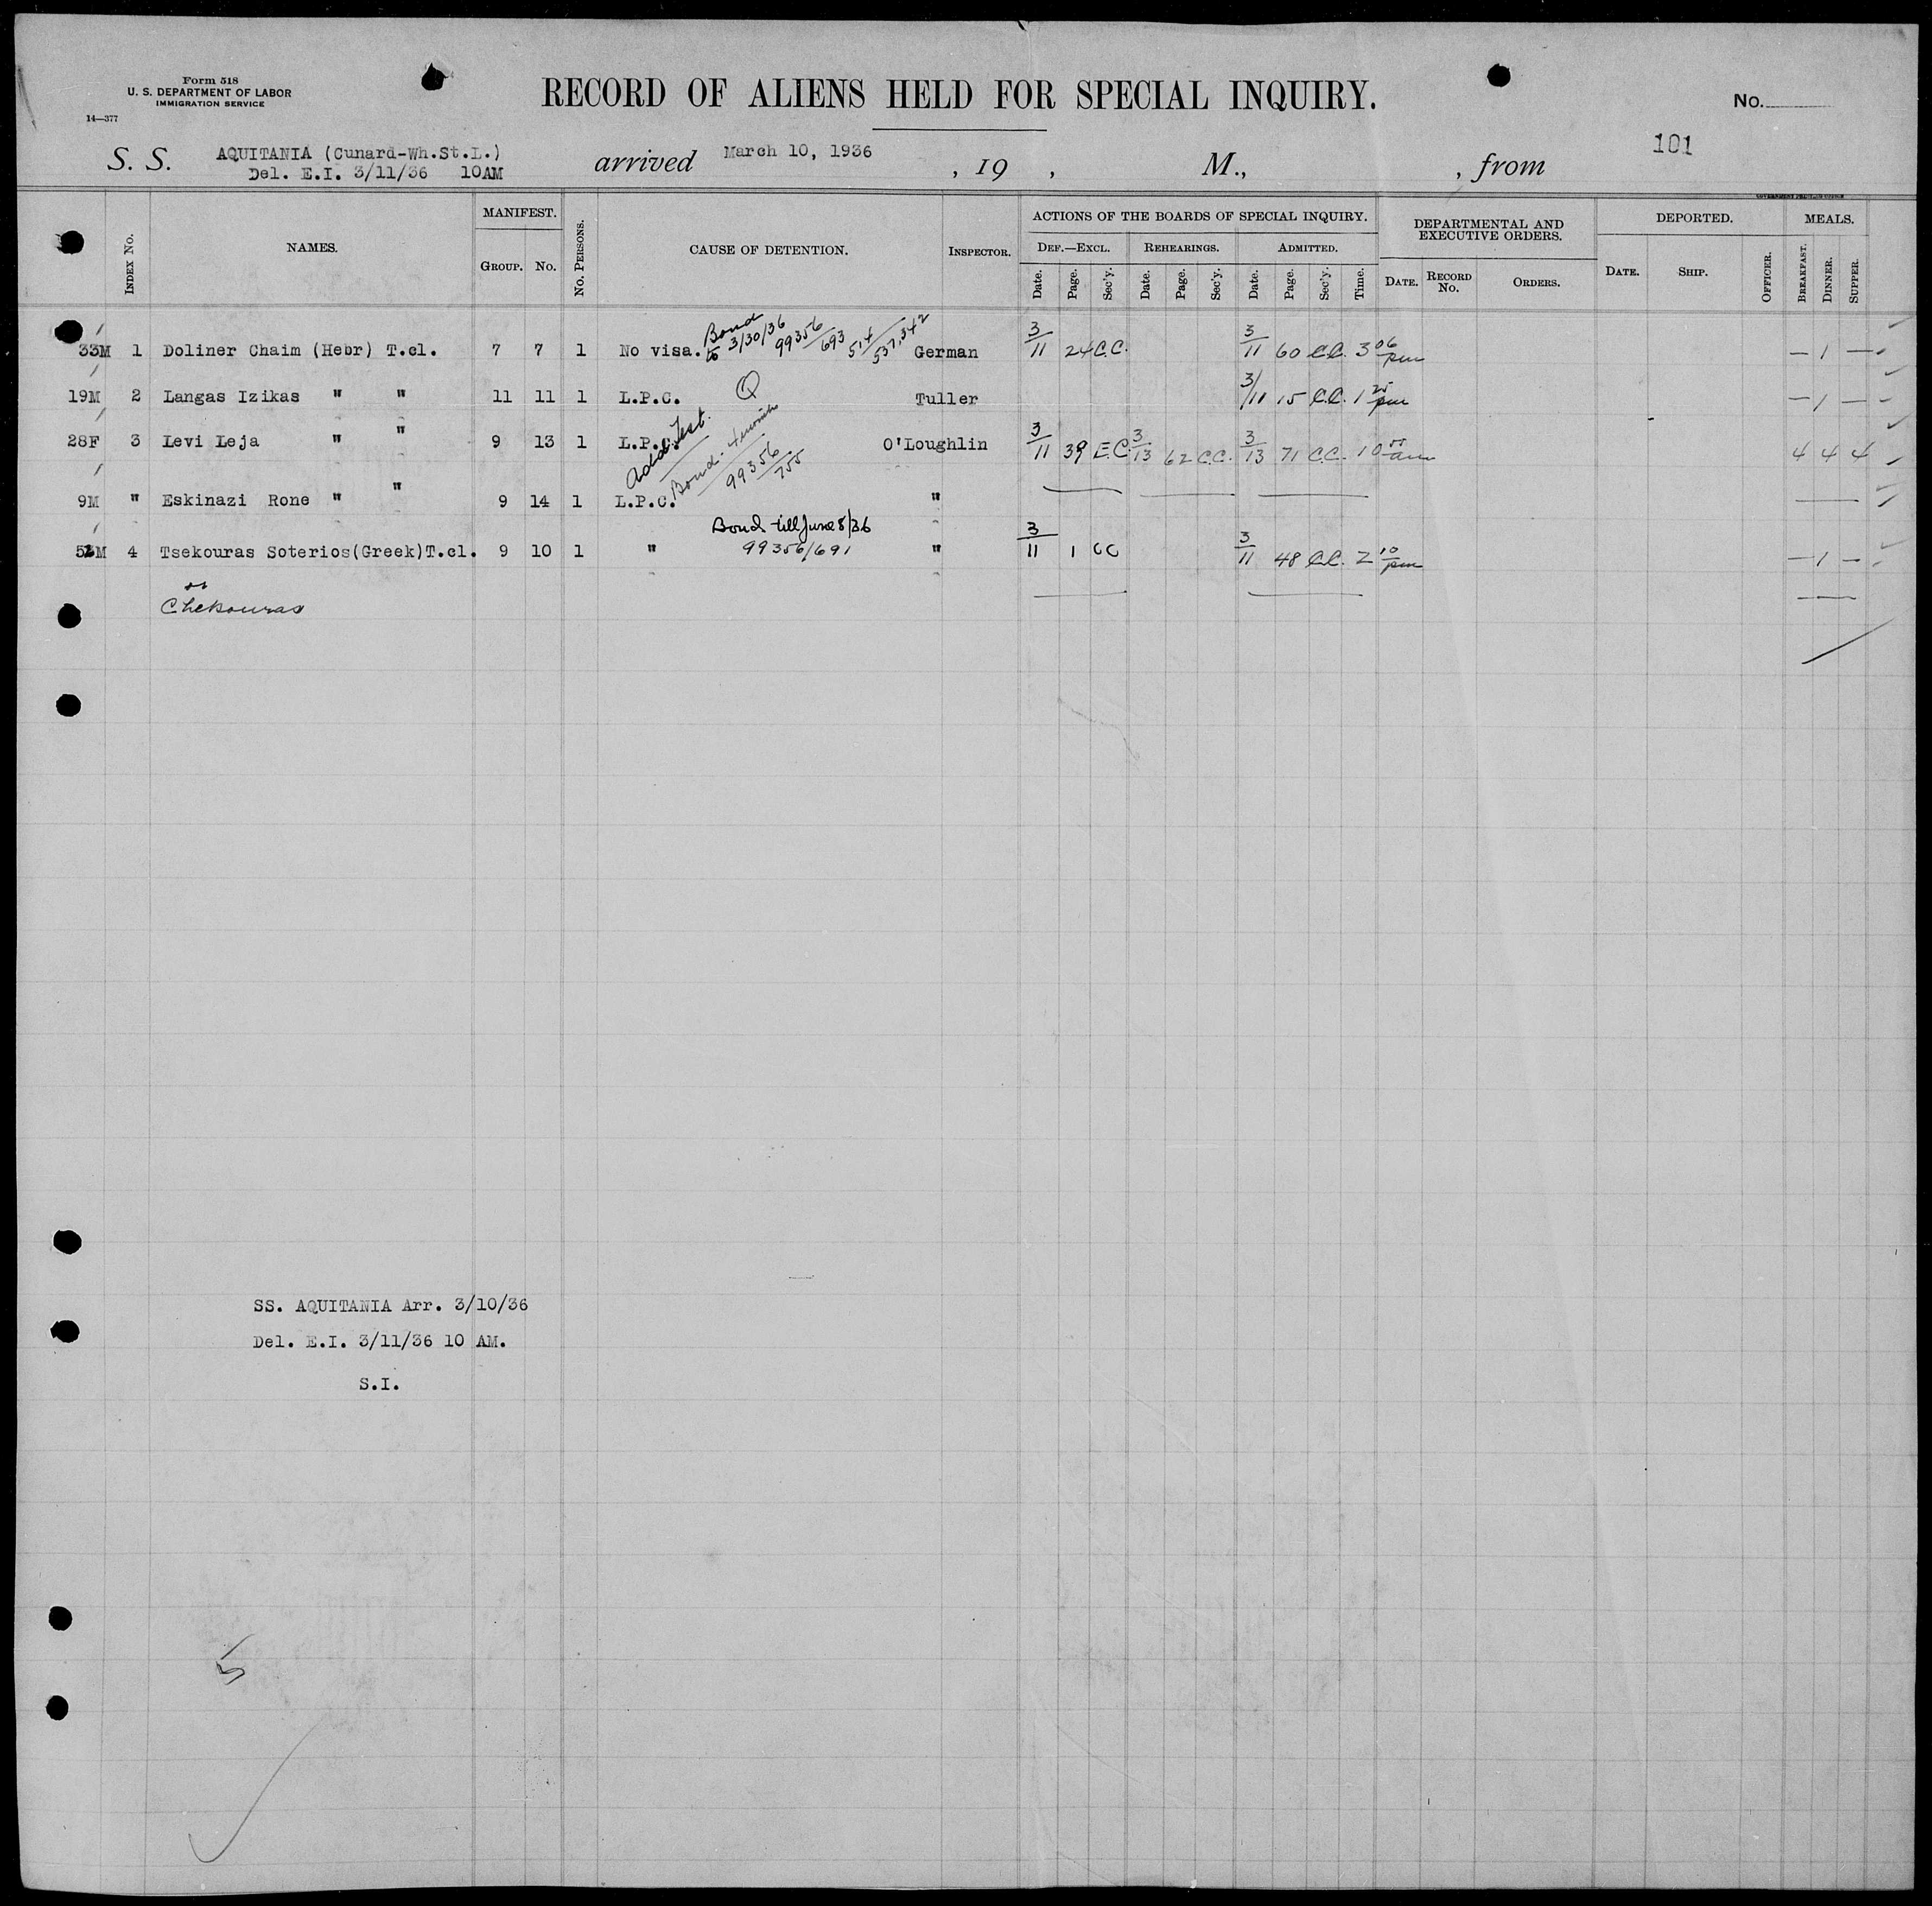 Form 518
U. S. DEPARTMENT OF LABOR
IMMIGRATION SERVICE
14—377
RECORD OF ALIENS HELD FOR SPECIAL INQUIRY.
No.
101
S. S. AQUITANIA (Cunard-Wh.St.L.) arrived March 10, 1936 , 19 , M., , from
Del. E.I. 3/11/36 10AM
INDEX NO. NAMES. MANIFEST. GROUP. NO. NO. PERSONS. CAUSE OF DETENTION. INSPECTOR. ACTIONS OF THE BOARDS OF SPECIAL INQUIRY. DEPARTMENTAL AND EXECUTIVE ORDERS. DEPORTED. MEALS.
DEF.—EXCL. REHEARINGS. ADMITTED.
Date. Page. Sec'y. Date. Page. Sec'y. Date. Page. Sec'y. Time. DATE. RECORD NO. ORDERS. DATE. SHIP. OFFICER. BREAKFAST. DINNER. SUPPER.
Bond to 3/30/36 99356/693
33M 1 Doliner Chaim (Hebr) T.cl. 7 7 1 No visa. German 3/11 24 C.C. 3/11 60 C.C. 3 06 pm — 1 —
19M 2 Langas Izikas " " 11 11 1 L.P.C. Q Tuller 3/11 15 C.C. 1 25 pm — 1 —
28F 3 Levi Leja " " 9 13 1 L.P.C. O'Loughlin 3/11 39 E.C. 3/13 62 C.C. 3/13 71 C.C. 10 am 4 4 4
Add. Test.
Bond - 4 months
99356/755
9M " Eskinazi Rone " " 9 14 1 L.P.C. "
Bond till June 8/36
M 4 Tsekouras Soterios(Greek)T.cl. 9 10 1 " 99356/691 " 3/11 1 CC 3/11 48 C.C. 2 10 pm — 1 —
or
Chekouras
SS. AQUITANIA Arr. 3/10/36
Del. E.I. 3/11/36 10 AM.
S.I.
5